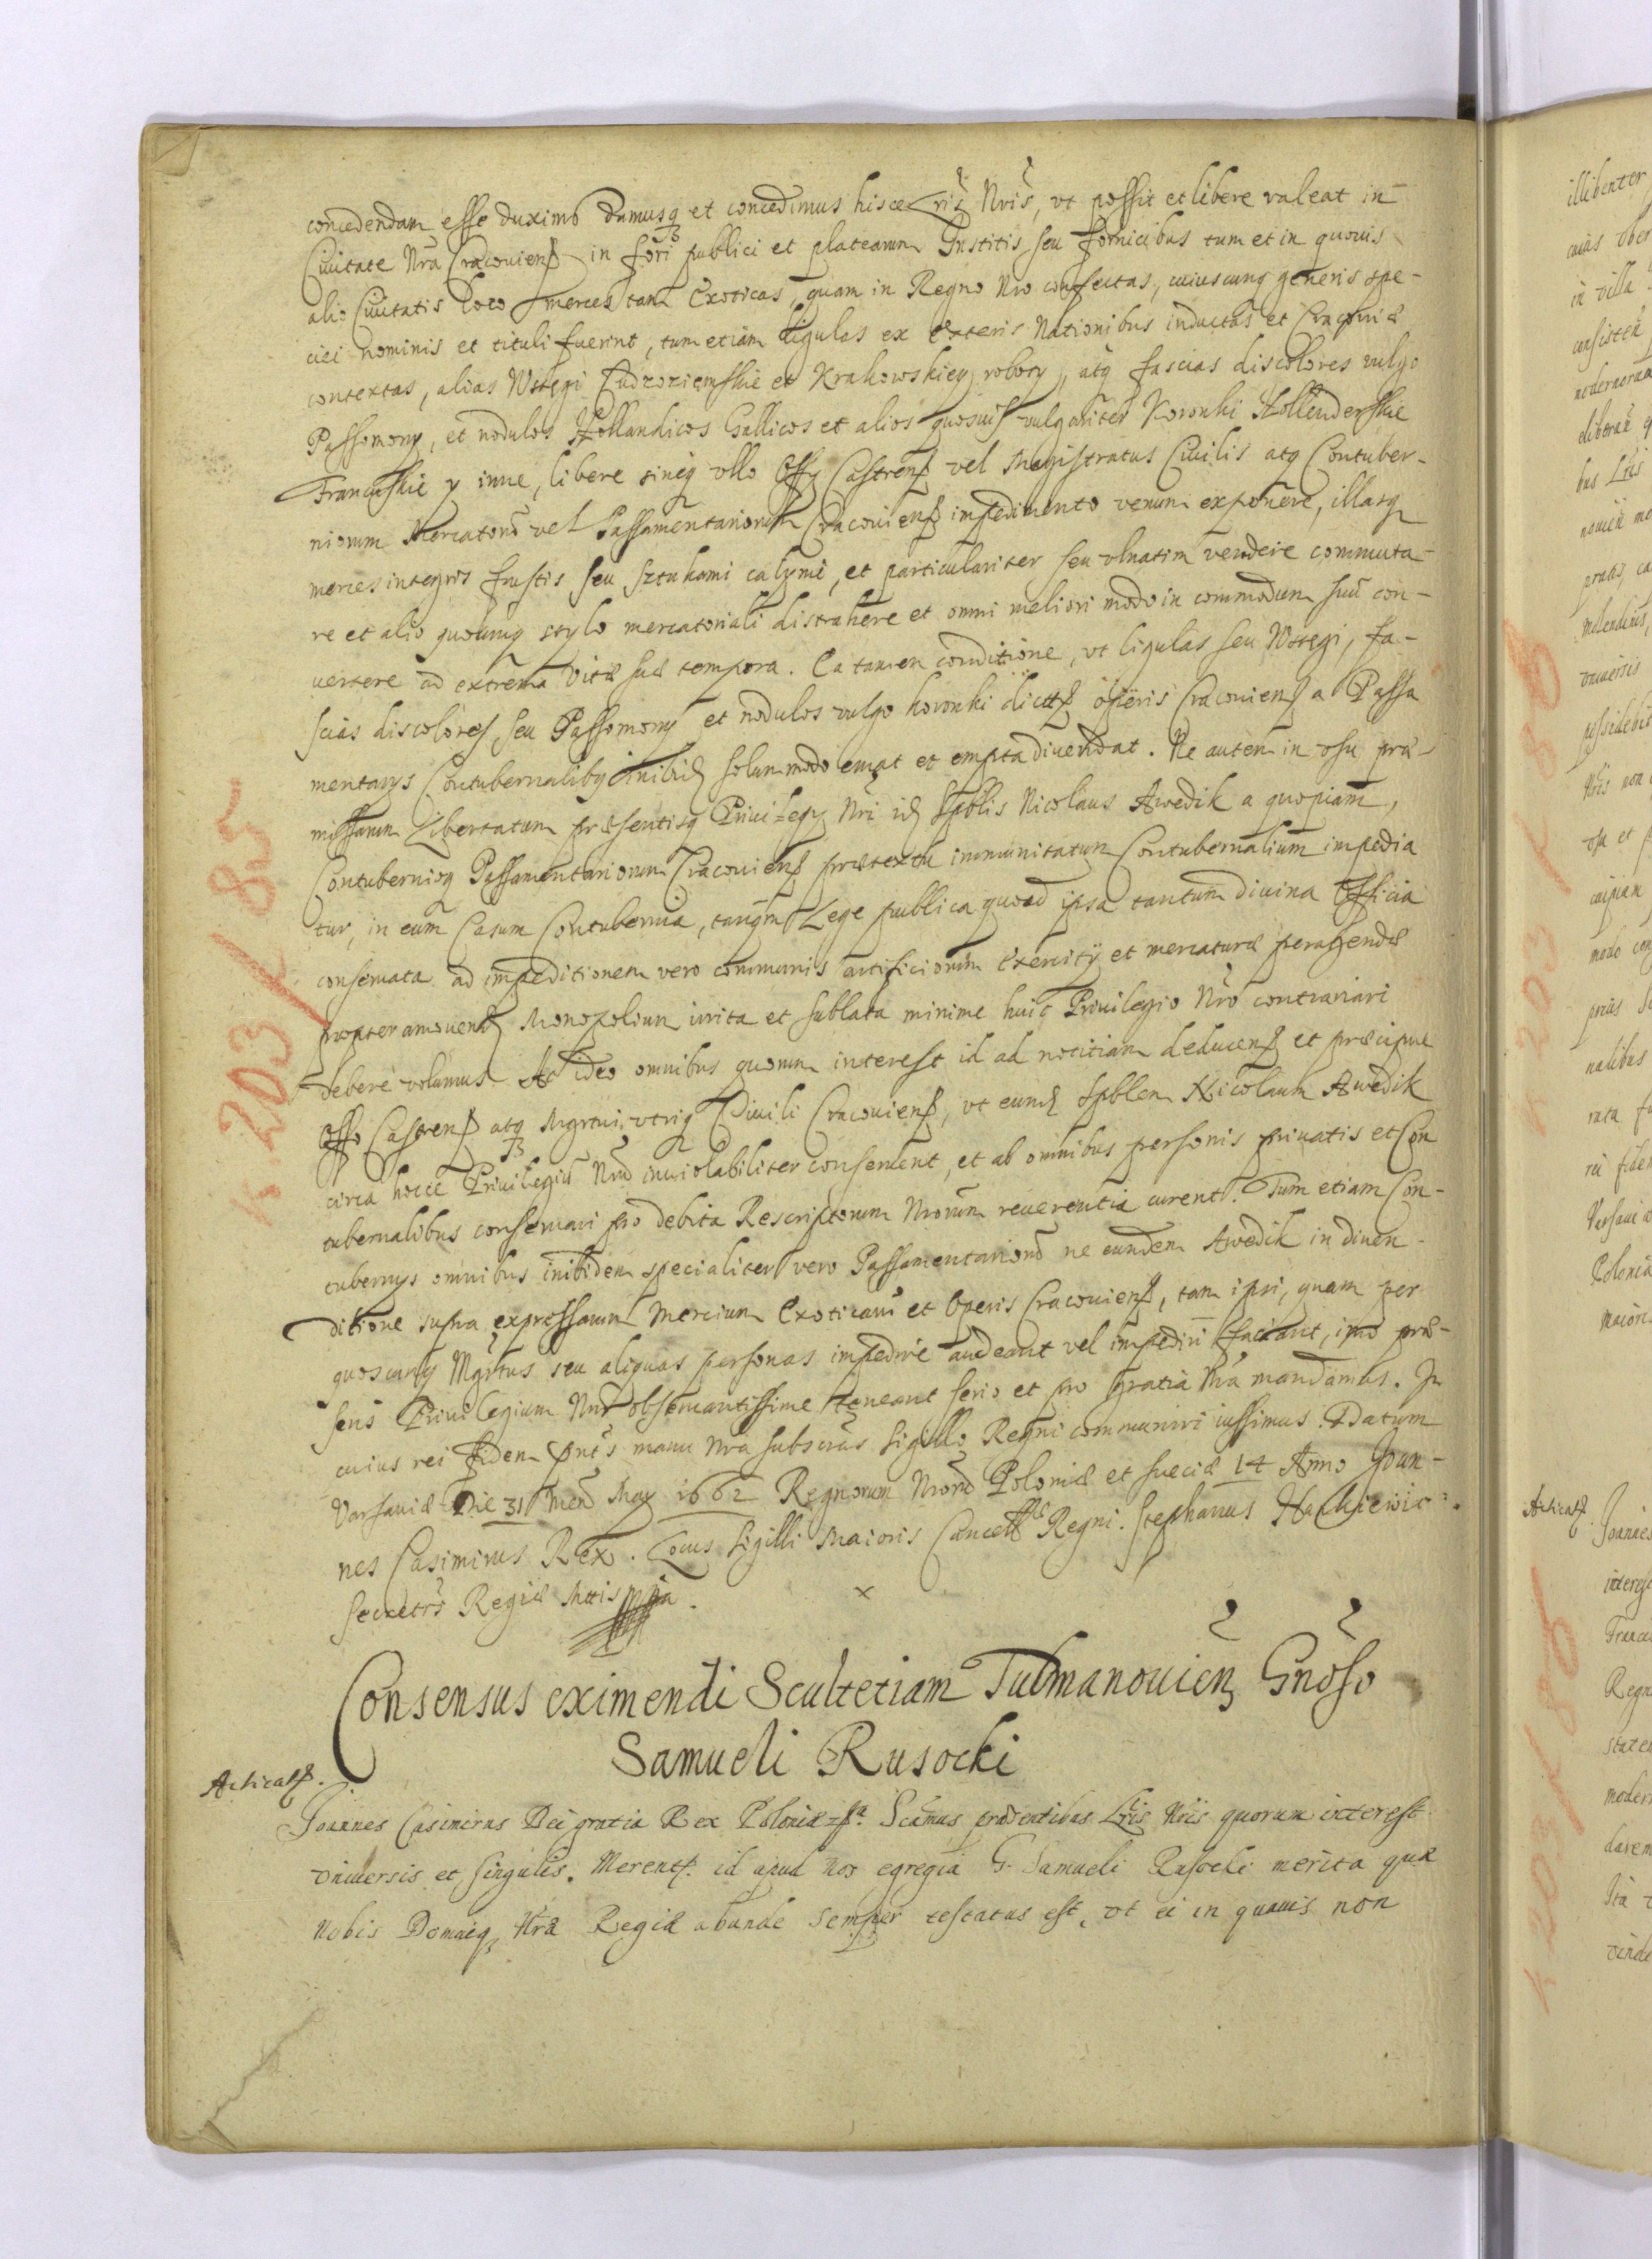 concedendam esse duximus Damusq et concedimus hisce Lris Nris, vt possit et libere valeat in
Ciuitate Nra Cracouiens in fori publici et platearum Institis seu fornicibus tum et in quouis
alio Ciuitatis loco merces tam Exoticas, quam in Regno Nro confectas, cuiuscunq generis spe-
ciei nominis et tituli fuerint, tum etiam ligulas ex exteris Nationibus inductas et Cracouiæ
contextas, alias Wstegi Cudzoziemskie et Krakowskiey roboty, atq fascias discolores vulgo
Passomony, et nodulos Hollandicos Gallicos et alios quosuis vulgariter Koronki Hollenderskie
Francuskie y inne, libere sineq vllo Offy Castrens vel Magistratus Ciuilis atq Contuber-
niorum Mercatorū vel Passamentariorum Cracouiens impedimento venum exponere, illasq
merces integris frustis seu sztukami calymi, et particulariter seu vlnatim vendere commuta-
re et alio quocunq stylo mercatoriali distrahere et omni meliori modo in commodum suū con-
uertere ad extrema vitæ suæ tempora. Ea tamen conditione, vt ligulas seu Wstegi, fa-
scias discolores seu Passomony et nodulos vulgo koronki dictt operis Cracouiens a Passa
mentarys Contubernalibq inibid solummodo emat et empta diuendat. Ne autem in vsu præ-
missarum Libertatum præsentisq Priuilegy Nri id Spblis Nicolaus Awedik a quopiam,
Contuberniq Passamentariorum Cracouiens prætextu immunitatum Contubernalium impedia
tur, in eum Casum Contubernia, tanqm Lege publica quoad ipsa tantum diuina Officia
conseruata ad impeditionem vero communis artificiorum Exercity et mercaturæ peragendæ
propter amouend Monopolium irrita et sublata minime huic Priuilegio Nro contrariari
debere volumus. Ac ideo omnibus quorum interest id ad notitiam deducens et præcipue
Offo Castrens atq Mgrtui vtriq Ciuili Cracouiens, vt eund Spblem Nicolaum Awedik
circa hocce Priuilegiū Nrū inuiolabiliter conseruent, et ab omnibus personis priuatis et Con
tubernalibus conseruari pro debita Rescriptorum Nrorum reuerentia curent. Tum etiam Con-
tubernys omnibus inibidem specialiter vero Passamentariorū ne eundem Awedik in diuen-
ditione supra expressarum Mercium Exoticarū et Operis Cracouiens, tam ipsi, quam per
quoscunq Mgrtus seu aliquas personas impedire audeant vel impediri faciant, imo præ-
sens Priuilegium Nrū obseruantissime teneant serio et pro gratia Nra mandamus. In
cuius rei fidem pnts manu Nra subscras Sigillo Regni communiri iussimus. Datum
Varsauiæ Die 31 Men May 1662 Regnorum Nrorū Poloniæ et Sueciæ 14 Anno Joan-
nes Casimirus Rex. Locus Sigilli Maioris Cancell Regni. Stephanus Hankiewic
Secretrs Regiæ Mttis mpa.
Consensus eximendi Scultetiam Tulmanouien Gnoso
Samueli Rusocki
Acticatt.
Joannes Casimirus Dei gratia Rex Poloniæ Scamus præsentibus Lris Nris quorum interest
vniuersis et singulis. Merentt id apud nos egregia G. Samueli Rusocki merita quæ
Nobis Domuiq Nræ Regiæ abunde semper testatus est, vt ei in quauis non
K 203 / 85